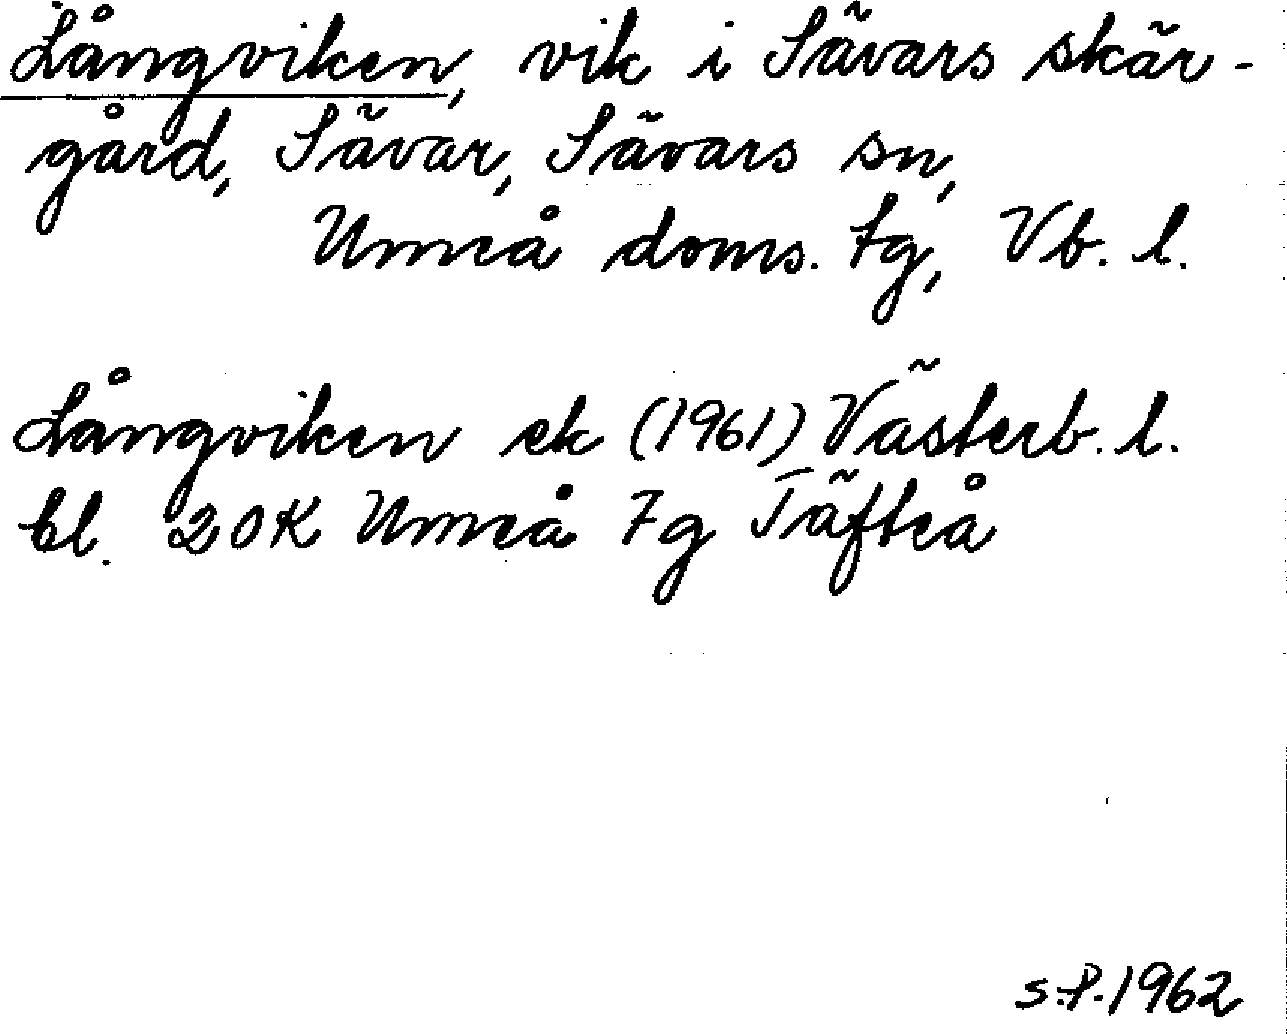 Långviken, vik i Sävars skär-
gård, Sävar, Sävars sn,
Umeå doms. tg, Vb. l.
Långviken ek (1961) Västerb. l.
bl. 20K Umeå 7g Täfteå
S.P. 1962